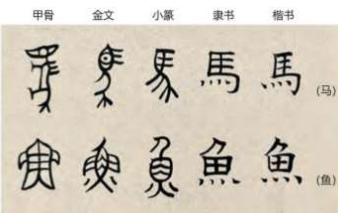 甲骨 金文 小篆 隶书 楷书
馬 馬 馬 馬 馬 (马)
魚 魚 魚 魚 魚 (鱼)